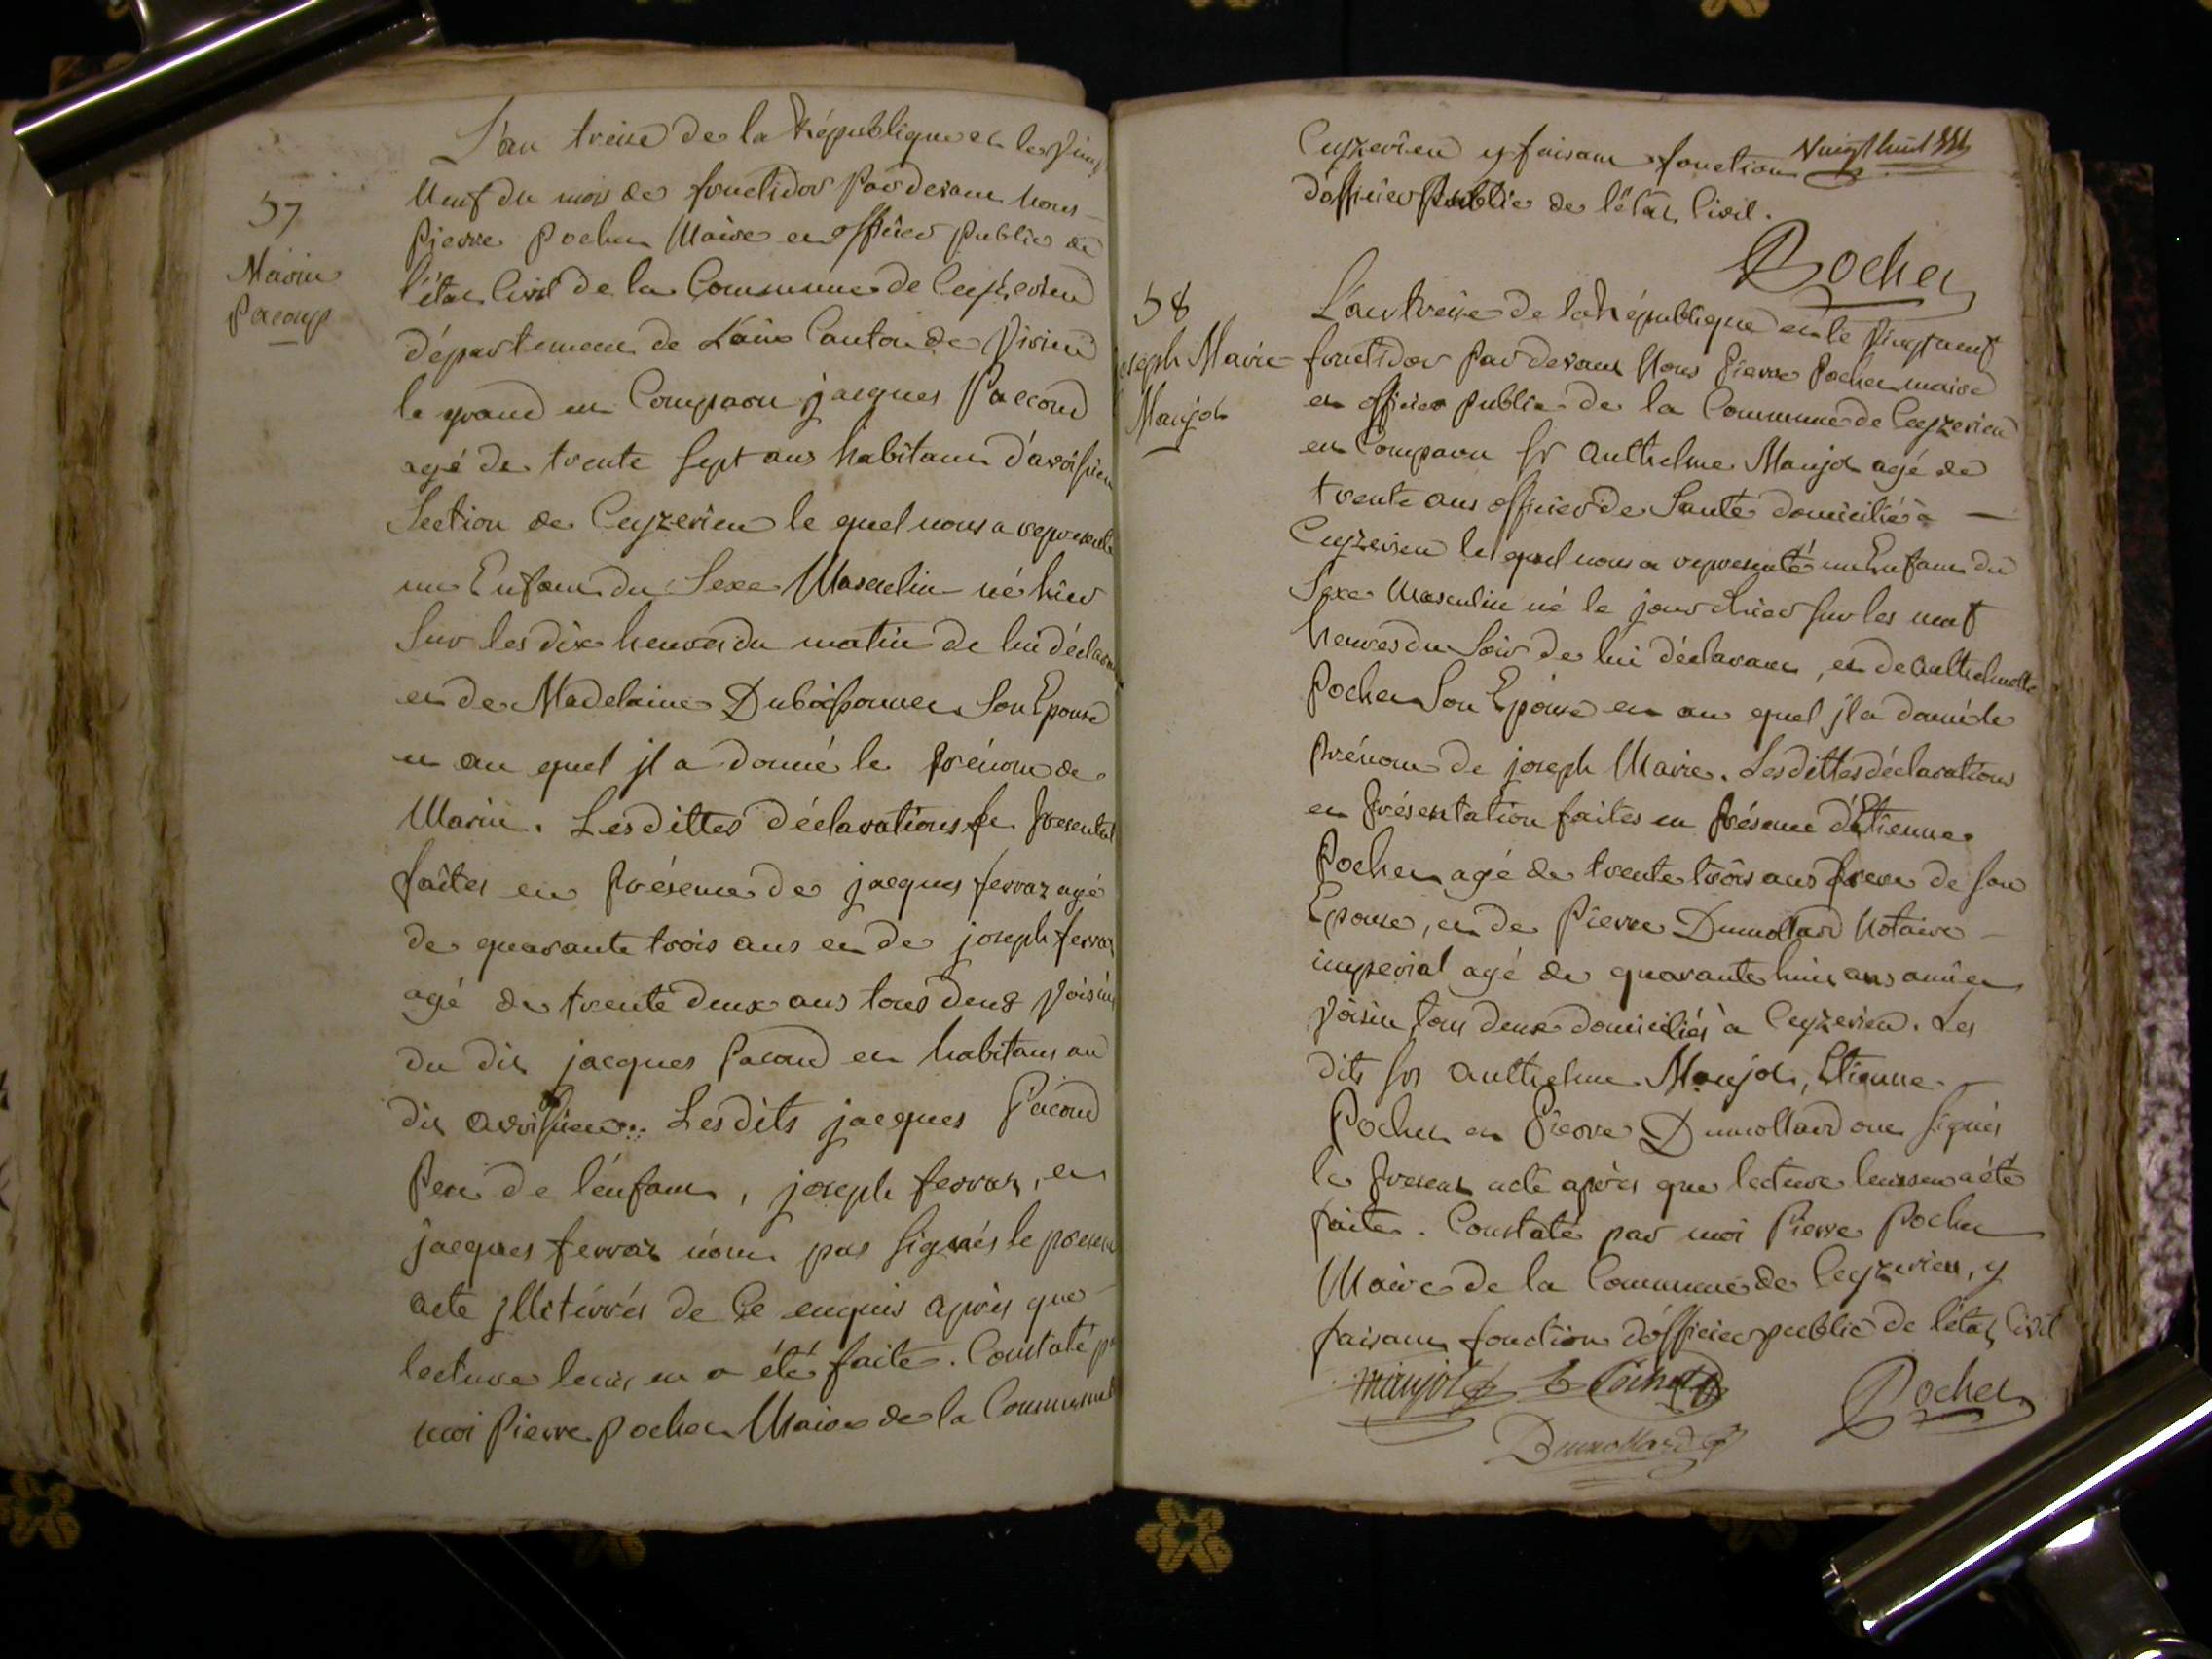 57
Marin
Pacoup
L'an treize de la République et le Vingt
Neuf du mois de fructidor Pardevant Nous
Pierre Pochet Maire et officier public de
l'état Civil de la Commune de Ceyzerieu
département de L'ain Canton de Virieu
le grand en Comparu jacques Paccoud
agé de trente sept ans habitant d'avoisieu
Section de Ceyzerieu le quel nous a representé
un Enfant du Sexe Masculin né hier
Sur les dix heures du matin de lui déclarant
et de Madelaine Duboissonnet Son Epouse
et au quel jl a donné le prénom de
Marin. Lesdittes déclarations et presentat
faites en présence de jacques ferraz agé
de quarante trois ans et de joseph ferraz
agé de trente deux ans tous deux Voisins
du dit jacques Pacoud et habitans au
dit avoisieu. Lesdits jacques Pacoud
Pere de l'enfant, joseph ferraz, et
jacques ferraz n'ont pas signés le present
acte jllitérrés de Ce enquis après que
lecture leur en a été faite. Constaté par
moi Pierre Pochet Maire de la Commune de
Vingt huit
Ceyzerieu y faisant fonction
d'officier Public de l'état Civil.
Pochet
58
Joseph Marie
Maujot
L'an treize de la République et le Vingt neuf
fructidor Par devant Nous Pierre Pochet maire
et officier public de la Commune de Ceyzerieu
en Comparu Sr Anthelme Maujot agé de
trente ans officier de Santé domicilié à
Ceyzerieu le quel nous a representé un Enfant du
Sexe Masculin né le jour d'hier Sur les neuf
heures du Soir de lui déclarant, et de Anthelmette
Pochet Son Epouse et au quel jl a donné le
Prénom de joseph Marie. Lesdittes déclarations
et présentation faites en présence d'Etienne
Pochet agé de trente trois ans frere de son
Epouse, et de Pierre Dumollard Notaire
imperial agé de quarante huit ans ami et
Voisin tous deux domiciliés à Ceyzerieu. Les
dits Srs Anthelme Maujot, Etienne
Pochet et Pierre Dumollard ont signés
le present acte après que lecture leur en a été
faite. Constaté par moi Pierre Pochet
Maire de la Commune de Ceyzerieu, y
faisant fonction d'officier public de l'état Civil
Maujot E Pochet
Pochet
Dumollard